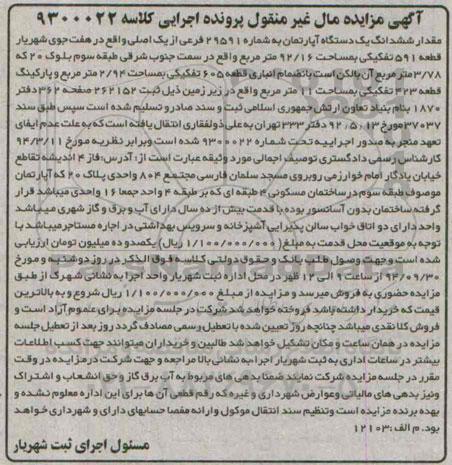 آگهی مزایده مال غیر منقول پرونده اجرایی کلاسه ۹۳۰۰۰۲۲
مقدار ششدانگ یک دستگاه آپارتمان به شماره ۲۹۵۹۱ فرعی از یک اصلی واقع در هفت جوی شهریار
قطعه ۵۹۱ تفکیکی بمساحت ۹۲/۱۶ متر مربع واقع در سمت جنوب شرقی طبقه سوم بلوک ۲۰ که
۳/۷۸ متر مربع آن بالکن است بانضمام انباری قطعه ۶۰۵ تفکیکی بمساحت ۲/۹۴ متر مربع و پارکینگ
قطعه ۴۲۳ تفکیکی بمساحت ۱۰ متر مربع واقع در زیر زمین ذیل ثبت ۲۶۲۱۵۲ صفحه ۳۶۲ دفتر
۱۸۷۰ بنام بنیاد تعاون ارتش جمهوری اسلامی ثبت و سند صادر و تسلیم شده است سپس طبق سند
۳۷۰۳۷ مورخ ۹۲,۵,۱۳ دفتر ۳۳۳ تهران به علی ذولفقاری انتقال یافته است که به علت عدم ایفای
تعهد منجر به صدور اجراییه تحت شماره ۹۳۰۰۰۲۲ شده است وبرابر نظریه مورخ ۹۴/۳/۱۱
کارشناس رسمی دادگستری توصیف اجمالی مورد وثیقه عبارت است از: آدرس: فاز ۴ اندیشه تقاطع
خیابان یادگار امام خوارزمی روبروی مسجد سلمان فارسی مجتمع ۸۰۴ واحدی پلاک ۲۰ که آپارتمان
موصوف طبقه سوم در ساختمان مسکونی ۴ طبقه ای که بر طبقه ۴ واحد جمعا ۱۶ واحدی میباشد قرار
گرفته ساختمان بدون آسانسور بوده با قدمت بیش از ده سال دارای آب و برق و گاز شهری میباشد
واحد دارای دو اتاق خواب سالن پذیرایی آشپزخانه و سرویس بهداشتی در اجاره مستاجر میباشد با
توجه به موقعیت محل قدمت به مبلغ (۱/۱۰۰/۰۰۰/۰۰۰ ریال) یکصدو ده میلیون تومان ارزیابی
شده است وجهت وصول طلب بانک و حقوق دولتی کلاسه فوق الذکر در روز دوشنبه و مورخ
۹۴/۰۹/۳۰ از ساعت ۹ الی ۱۲ ظهر در محل اداره ثبت شهریار واحد اجرا به نشانی شهرک از طبق
مزایده حضوری به فروش میرسد و مزایده از مبلغ ۱/۱۰۰/۰۰۰/۰۰۰ ریال شروع و به بالاترین
قیمت که خریدار داشته باشد فروخته خواهد شد شرکت در جلسه مزایده برای عموم آزاد است و
فروش کلا نقدی میباشد چنانچه روز تعیین شده با تعطیل رسمی مصادف گردد روز بعد از تعطیل جلسه
مزایده در همان ساعت و مکان تشکیل خواهد شد طالبین و خریداران میتوانند جهت کسب اطلاعات
بیشتر در ساعات اداری به ثبت شهریار اجرا به نشانی بالا مراجعه و جهت شرکت در مزایده در وقت
مقرر در جلسه مزایده شرکت نمایند ضمنا بدهی های مربوط به آب برق گاز و حق انشعاب و اشتراک
ونیز بدهی های مالیاتی وعوارض شهرداری و غیره که رقم قطعی آن ها برای این اداره معلوم نشده و
بعهده برنده مزایده است وتنظیم سند انتقال موکول وارائه مفصا حسابهای دارای و شهرداری خواهد
بود. م الف: ۱۲۱۰۳
مسئول اجرای ثبت شهریار